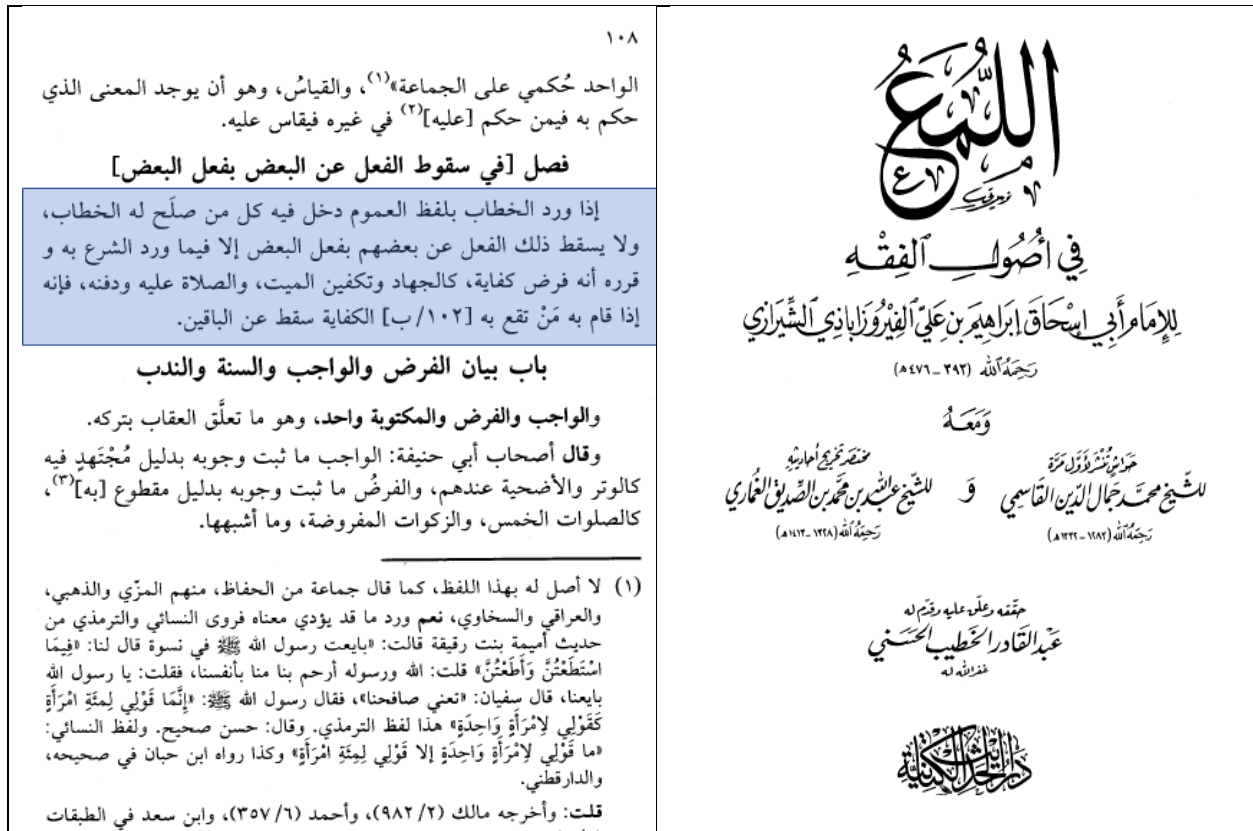 ١٠٨
الواحد حُكمي على الجماعة»(١)، والقياسُ، وهو أن يوجد المعنى الذي
حكم به فيمن حكم [عليه](٢) في غيره فيقاس عليه.
فصل [في سقوط الفعل عن البعض بفعل البعض]
إذا ورد الخطاب بلفظ العموم دخل فيه كل من صلَح له الخطاب،
ولا يسقط ذلك الفعل عن بعضهم بفعل البعض إلا فيما ورد الشرع به و
قرره أنه فرض كفاية، كالجهاد وتكفين الميت، والصلاة عليه ودفنه، فإنه
إذا قام به مَنْ تقع به [١٠٢/ب] الكفاية سقط عن الباقين.
باب بيان الفرض والواجب والسنة والندب
والواجب والفرض والمكتوبة واحد، وهو ما تعلَّق العقاب بتركه.
وقال أصحاب أبي حنيفة: الواجب ما ثبت وجوبه بدليل مُجْتَهدٍ فيه
كالوتر والأضحية عندهم، والفرضُ ما ثبت وجوبه بدليل مقطوع [به](٣)،
كالصلوات الخمس، والزكوات المفروضة، وما أشبهها.
(١) لا أصل له بهذا اللفظ، كما قال جماعة من الحفاظ، منهم المزّي والذهبي،
والعراقي والسخاوي، نعم ورد ما قد يؤدي معناه فروى النسائي والترمذي من
حديث أميمة بنت رقيقة قالت: «بايعت رسول الله ﷺ في نسوة قال لنا: «فِيمَا
اسْتَطَعْتُنَّ وَأَطَعْتُنَّ» قلت: الله ورسوله أرحم بنا منا بأنفسنا، فقلت: يا رسول الله
بايعنا، قال سفيان: «تعني صافحنا»، فقال رسول الله ﷺ: «إِنَّمَا قَوْلِي لِمِئَةِ امْرَأَةٍ
كَقَوْلِي لِامْرَأَةٍ وَاحِدَةٍ» هذا لفظ الترمذي. وقال: حسن صحيح. ولفظ النسائي:
«ما قَوْلِي لِامْرَأَةٍ وَاحِدَةٍ إلا قَوْلِي لِمِئَةِ امْرَأَةٍ» وكذا رواه ابن حبان في صحيحه،
والدارقطني.
قلت: وأخرجه مالك (٢/ ٩٨٢)، وأحمد (٦/ ٣٥٧)، وابن سعد في الطبقات
اللُّمَع
في أُصُولِ الفِقْهِ
لِلإِمَامِ أَبي إِسْحَاقَ إِبْرَاهِيمَ بنِ عَلِيّ الفِيْرُوزَابَاذِي الشِّيْرَازِي
رَحِمَهُ ٱللَّه (٣٩٣ - ٤٧٦هـ)
وَمَعَهُ
حَوَاشٍ تُنْشَرُ لأَوَّلِ مَرَّة
للشيخ محمَّد جَمَال الدّين القَاسِمي
رَحِمَهُ ٱللَّه (١٢٨٣ - ١٣٣٢هـ)
وَ
مختصر تخريج أحاديثه
للشيخ عبد الله بن محمَّد بن الصِّديق الغُماري
رَحِمَهُ ٱللَّه (١٣٢٨ - ١٤١٣هـ)
حقّقه وعلّق عليه وقدّم له
عَبْد القَادر الخَطيب الحَسَني
غفر الله له
دار الحديث الكتانية